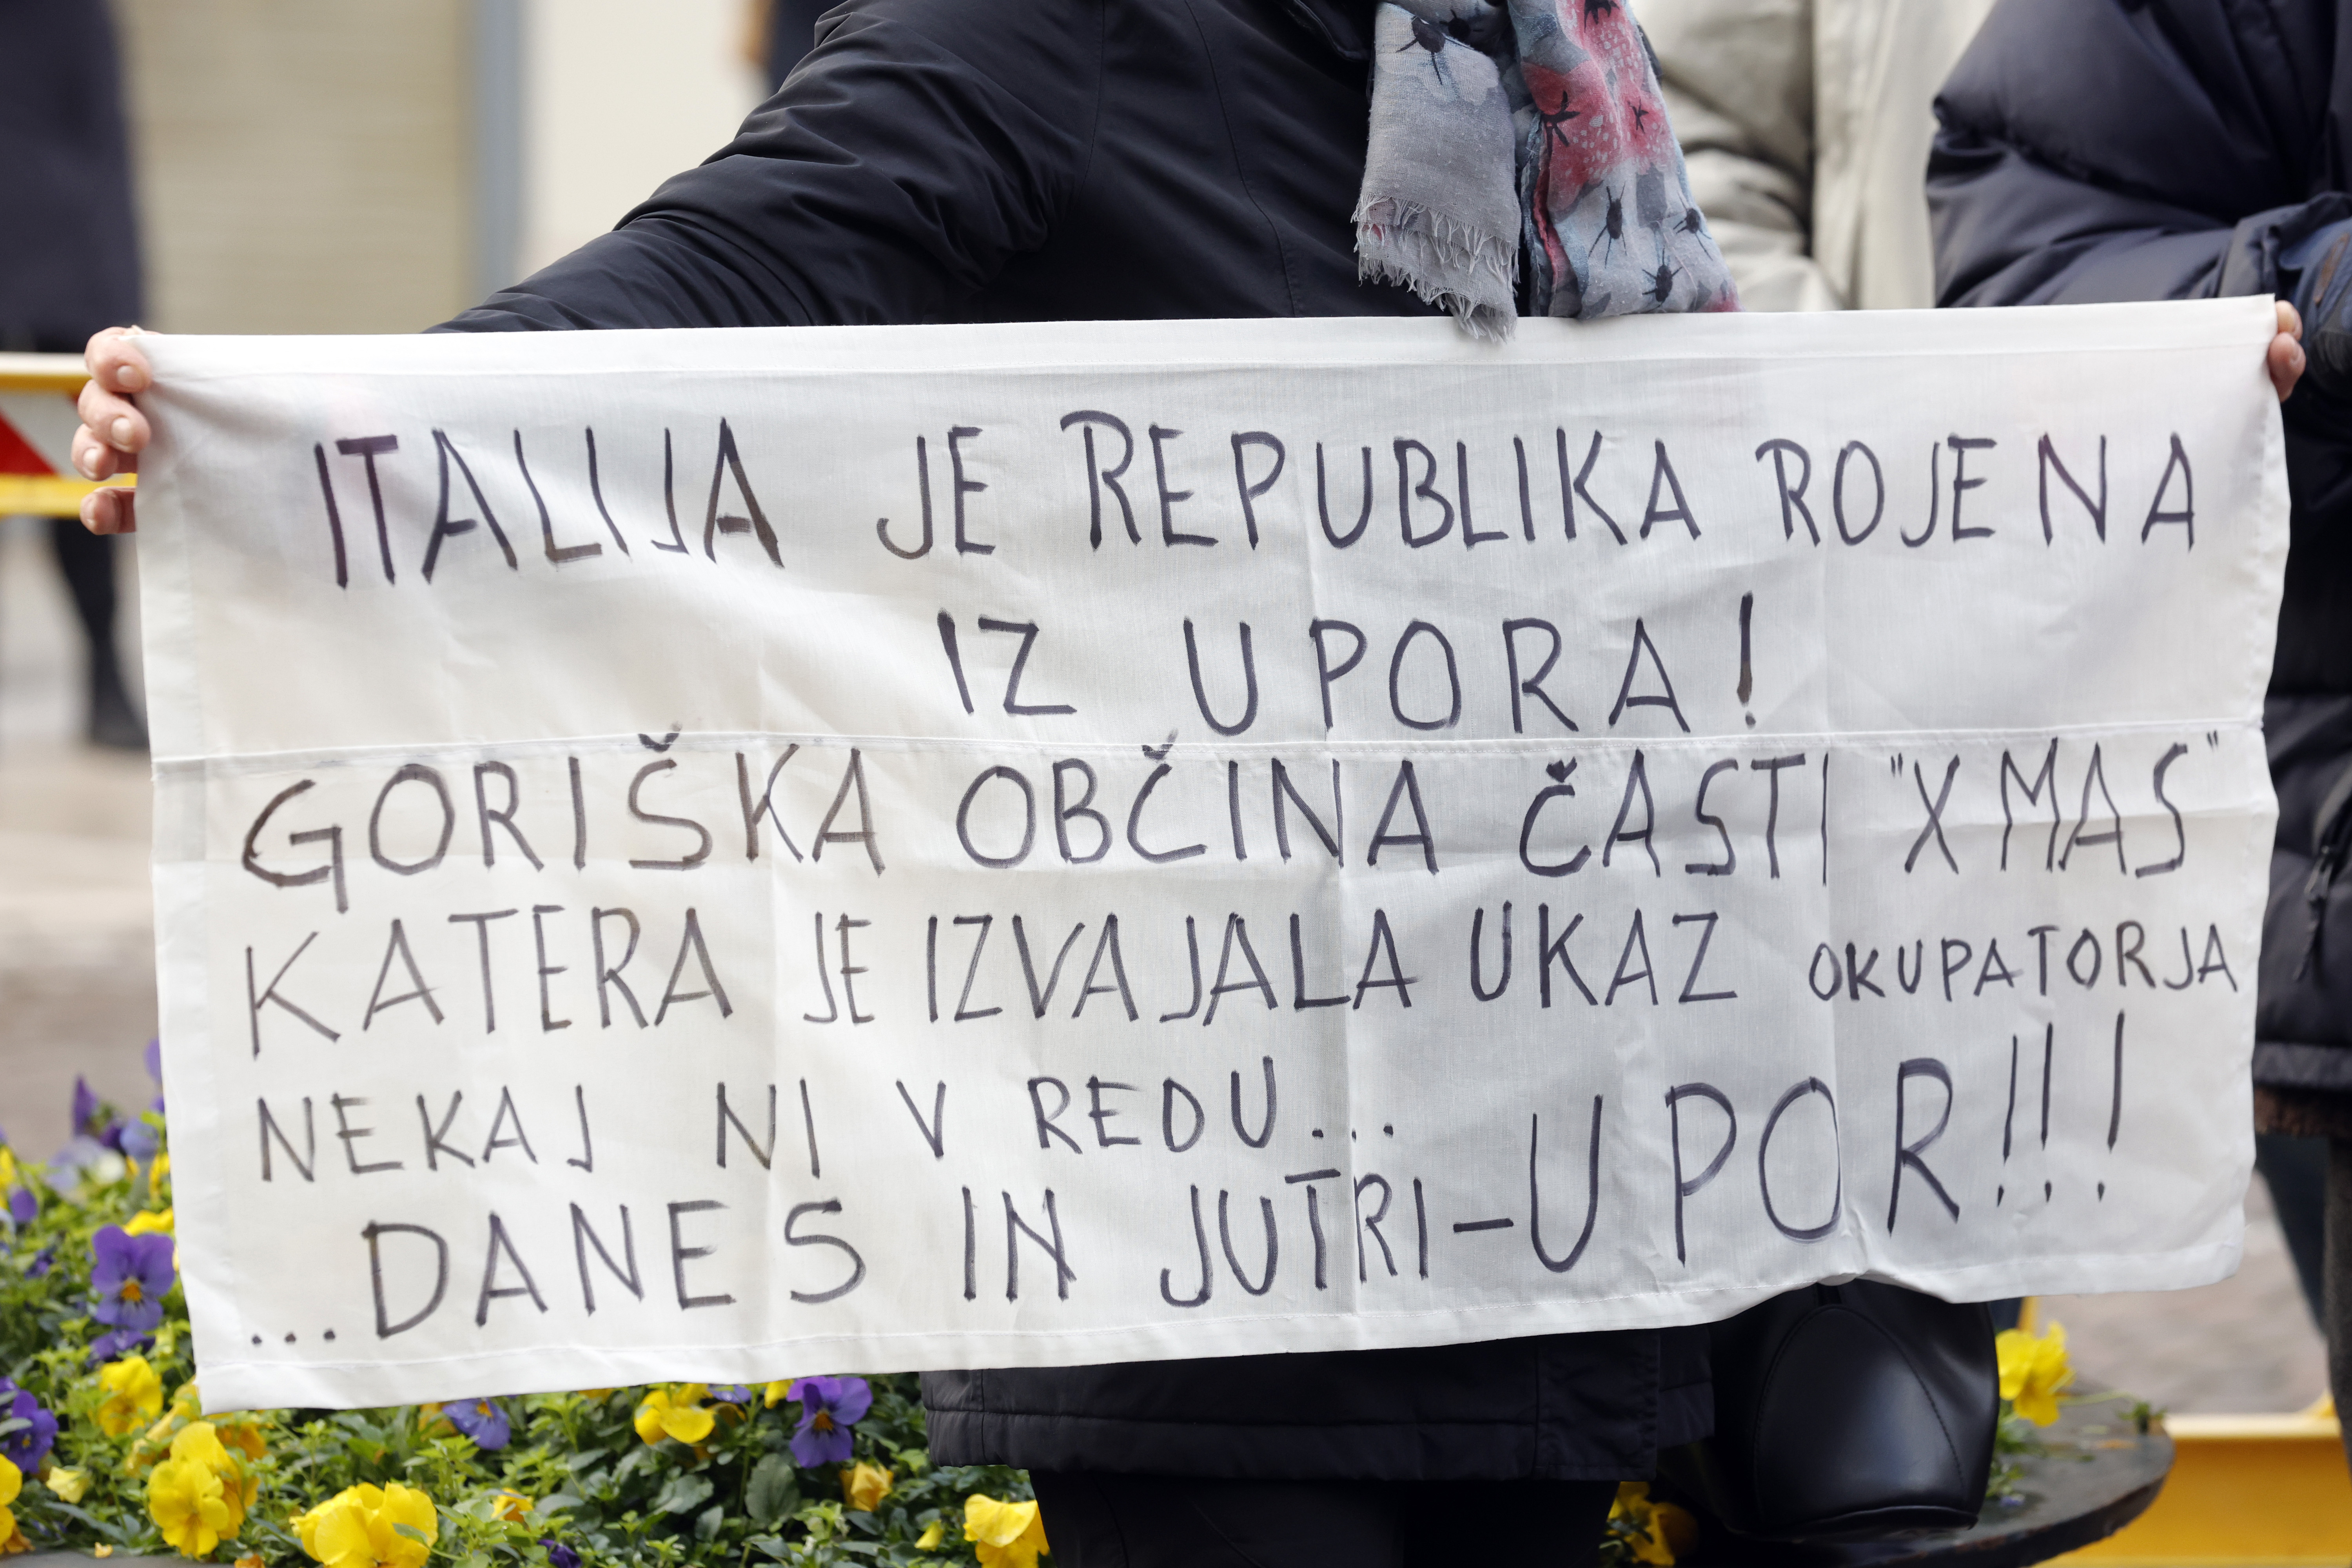 ITALIJA JE REPUBLIKA ROJENA
IZ UPORA!
GORIŠKA OBČINA ČASTI "X MAS"
KATERA JE IZVAJALA UKAZ OKUPATORJA
NEKAJ NI V REDU...
...DANES IN JUTRI-UPOR!!!